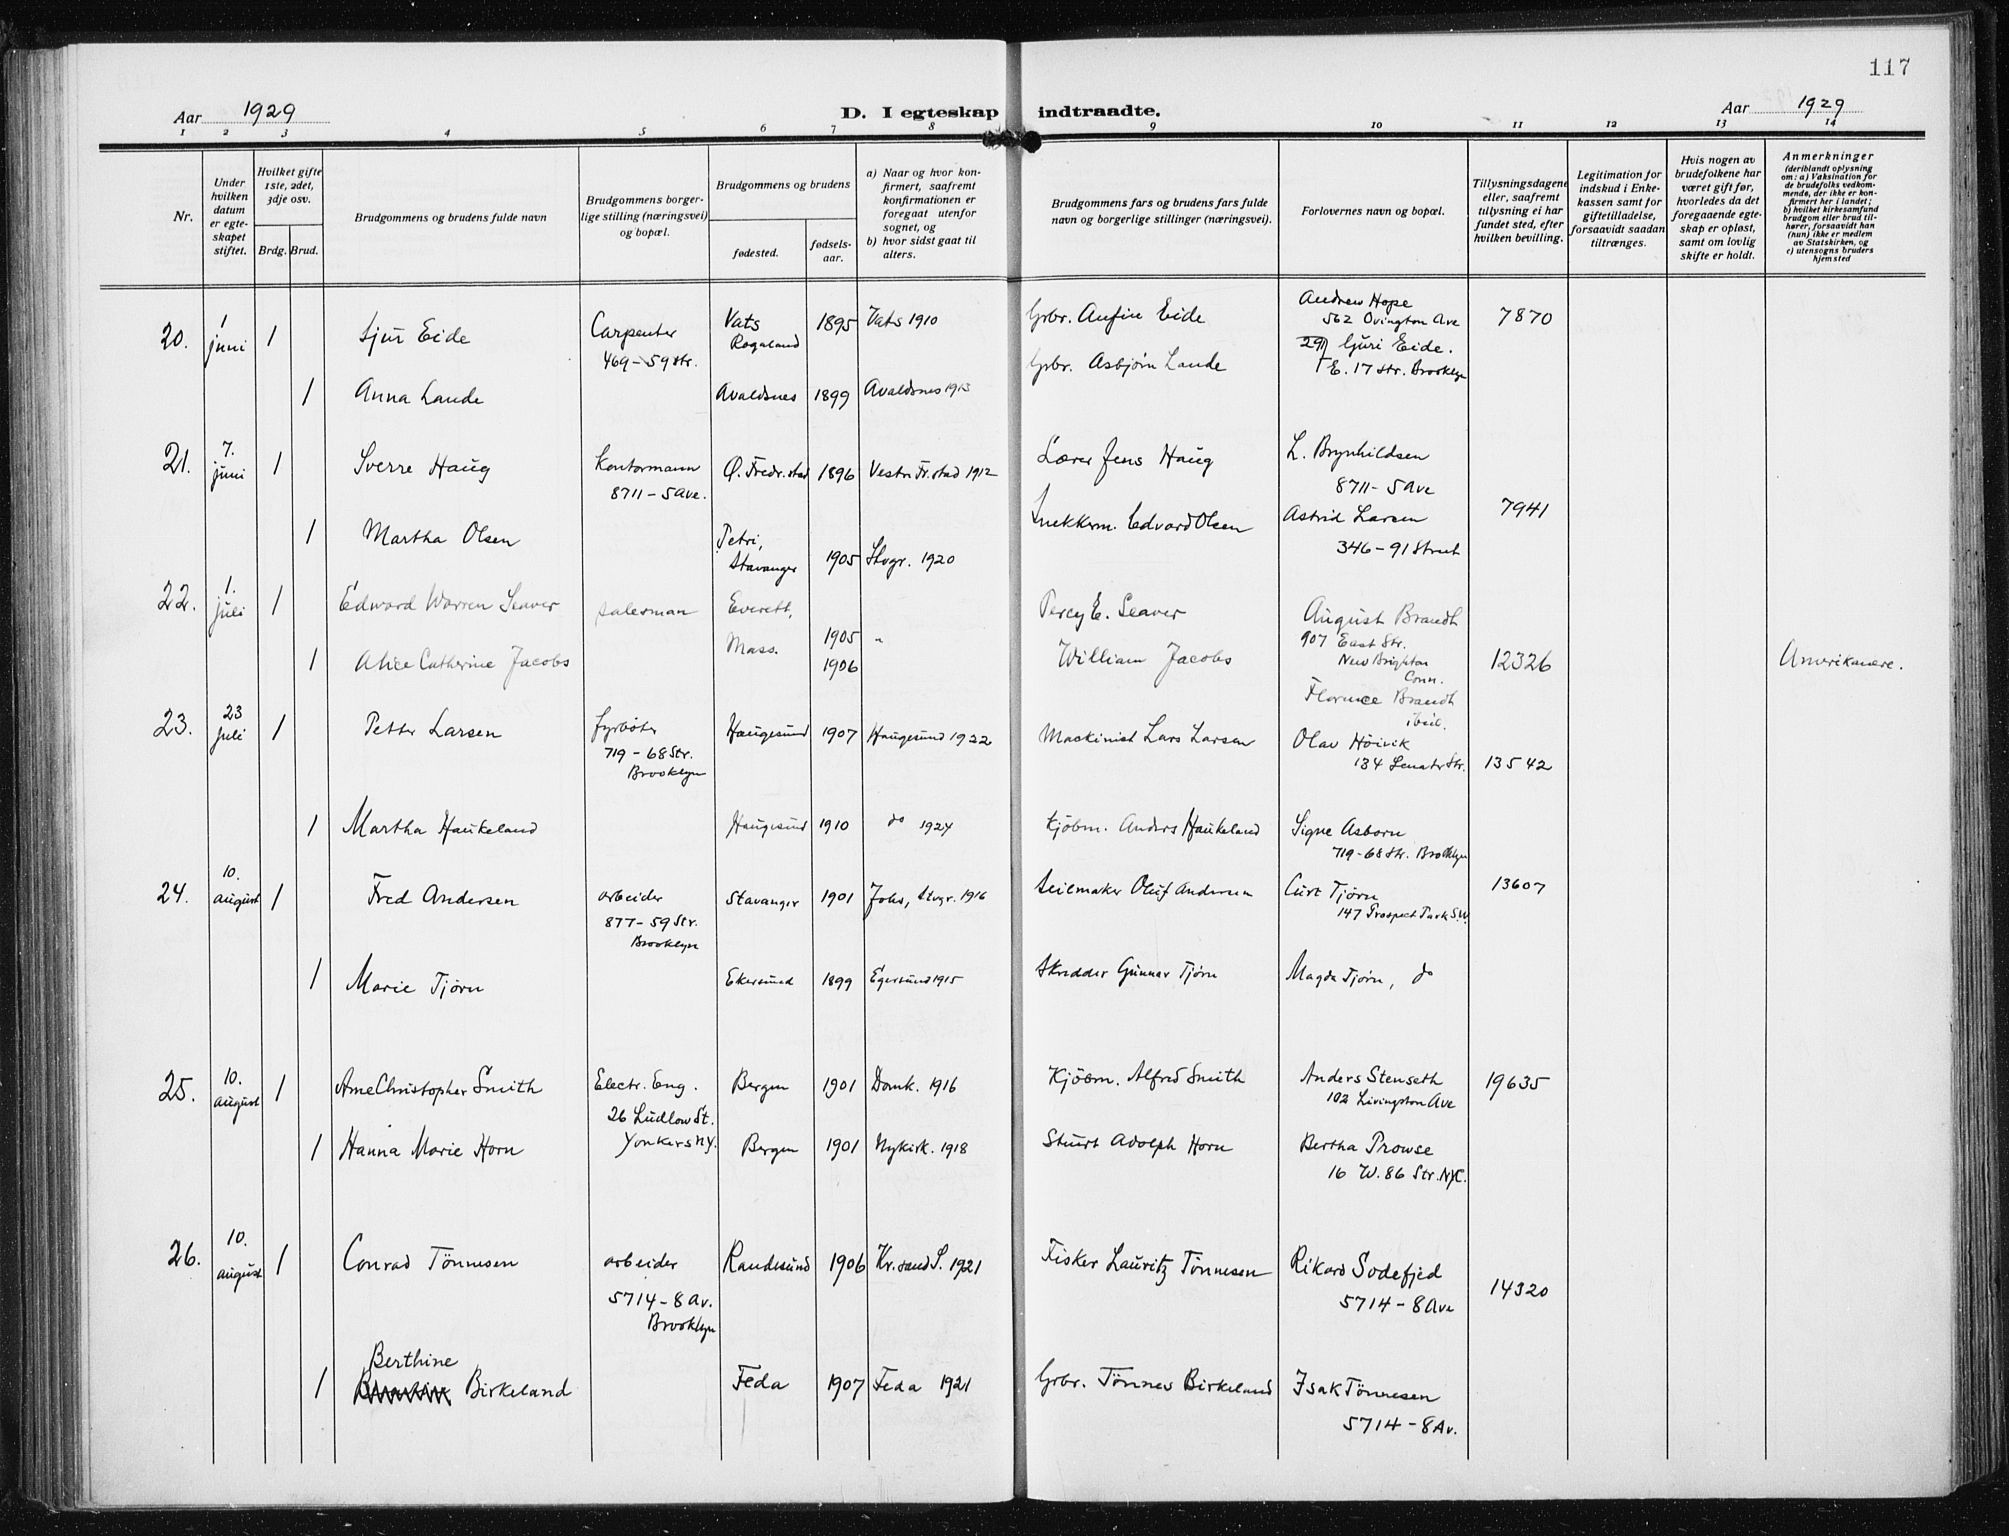 117
Aar 1929
D. I egteskap indtraadte.
Aar 1929
1 2 3 4 5 6 7 8 9 10 11 12 13 14
Nr.
Under hvilken datum er egteskapet stiftet.
Hvilket gifte 1ste, 2det, 3dje osv.
Brdg. Brud.
Brudgommens og brudens fulde navn
Brudgommens borgerlige stilling (næringsvei) og bopæl.
Brudgommens og brudens
fødested.
fødselsaar.
a) Naar og hvor konfirmert, saafremt konfirmationen er foregaat utenfor sognet, og
b) hvor sidst gaat til alters.
Brudgommens fars og brudens fars fulde navn og borgerlige stillinger (næringsvei).
Forlovernes navn og bopæl.
Tillysningsdagene eller, saafremt tillysning ei har fundet sted, efter hvilken bevilling.
Legitimation for indskud i Enkekassen samt for giftetilladelse, forsaavidt saadan tiltrænges.
Hvis nogen av brudefolkene har været gift før, hvorledes da det foregaaende egteskap er opløst, samt om lovlig skifte er holdt.
Anmerkninger
(deriblandt oplysning om: a) Vaksination for de brudefolks vedkommende, der ikke er konfirmert her i landet; b) hvilket kirkesamfund brudgom eller brud tilhører, forsaavidt han (hun) ikke er medlem av Statskirken, og c) utensogns bruders hjemsted
20. 1 juni 1 Sjur Eide Carpenter Vats Rogaland 1895 Vats 1910 Grbr. Anfin Eide Andrew Hope 7870
469-59 str. 562 Ovington Ave
291 Guri Eide.
E. 17 str. Brooklyn
1 Anna Lande Avaldsnes 1899 Avaldsnes 1913 Grbr. Asbjørn Lande
21. 7. juni 1 Sverre Haug Kontormann Ø. Fredr.stad 1896 Vestre Fr.stad 1912 Lærer Jens Haug L. Brynhildsen
8711-5 Ave. 8711-5 Ave
1 Martha Olsen Petri, Stavanger 1905 Stvgr. 1920 Snekkerm. Edvard Olsen Astrid Larsen 7941
346-91 Street
22. 1. juli 1 Edward Warren Seaver salesman Everett, Mass. 1905 " Percy E. Seaver August Brandt
907 East Str.
New Brighton Conn.
1 Alice Catherine Jacobs 1906 William Jacobs 12326 Amerikanere.
Florence Brandt
ibid.
23. 23 juli 1 Petter Larsen fyrbøter Haugesund 1907 Haugesund 1922 Maskinist Lars Larsen Olav Höivik
719-68 Str. 134 Senator Str. 13542
Brooklyn
1 Martha Haukeland Haugesund 1910 do 1924 Kjøbm. Anders Haukeland Signe Asborn
719-68 Str. Brooklyn
24. 10. august 1 Fred Andersen arbeider Stavanger 1901 Joh., Stvgr. 1916 Seilmaker Oluf Andersen Curt Tjørn 13607
877-59 Str. 147 Prospect Park S.W.
Brooklyn
1 Marie Tjørn Ekersund 1899 Egersund 1915 Skredder Gunnar Tjørn Magda Tjørn, do
25. 10. august 1 Arne Christopher Smith Electr. Eng. Bergen 1901 Domk. 1916 Kjöbm. Alfred Smith Anders Stenseth 19635
26 Ludlow St. 102 Livingston Ave
Yonkers N.Y.
1 Hanna Marie Horn Bergen 1901 Nykirk. 1918 Stuert Adolph Horn Bertha Prowse
16 W. 86 Str. NYC.
26. 10. august 1 Conrad Tönnesen arbeider Randesund 1906 Kr.sand S. 1921 Fisker Lauritz Tönnesen Rikard Sodefjed 14320
5714-8 Av. 5714-8 Ave
Brooklyn
Berthine
1 Birkeland Feda 1907 Feda 1921 Grbr. Tönnes Birkeland Isak Tönnesen
5714-8 Av.